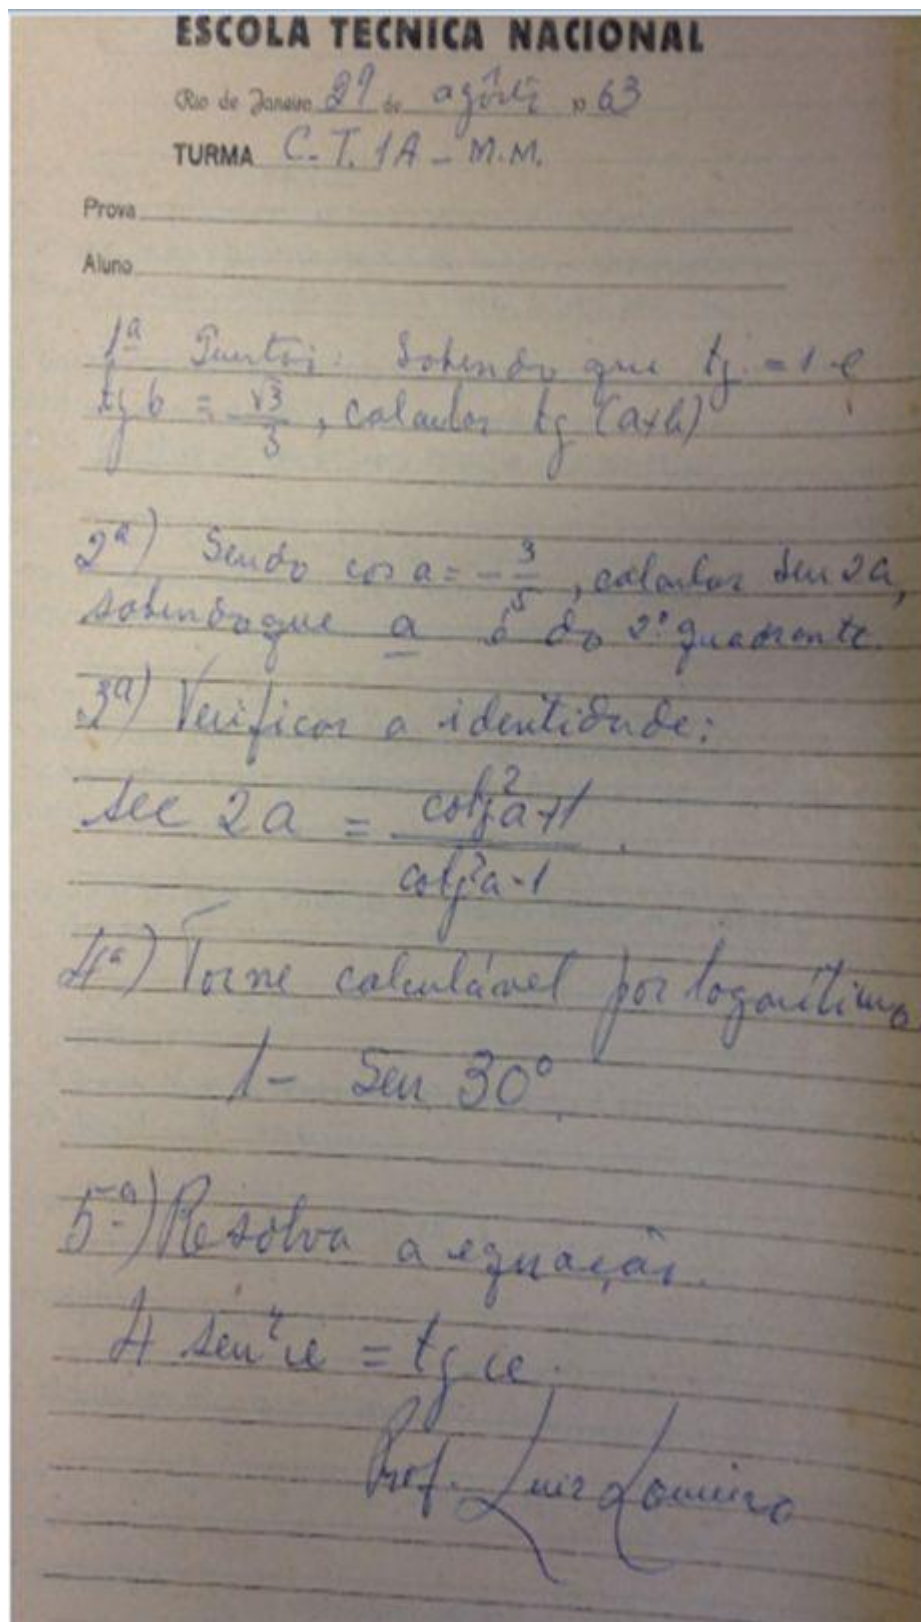 ESCOLA TECNICA NACIONAL
Rio de Janeiro 29 de agôsto 1963
TURMA C.T. 1A - M.M.
Prova
Aluno
1ª Questão: Sabendo que tg = 1 e
tg b = √3/3, calcular tg (a+b)
2ª) Sendo cos a = -3/5, calcular sen 2a,
sabendo que a é do 2º quadrante.
3ª) Verificar a identidade:
sec 2a = cotg²a+1 / cotg²a-1.
4ª) Torne calculável por logarítimo
1 - Sen 30°
5ª) Resolva a equação.
4 sen² x = tg x.
Prof. Luiz Loureiro